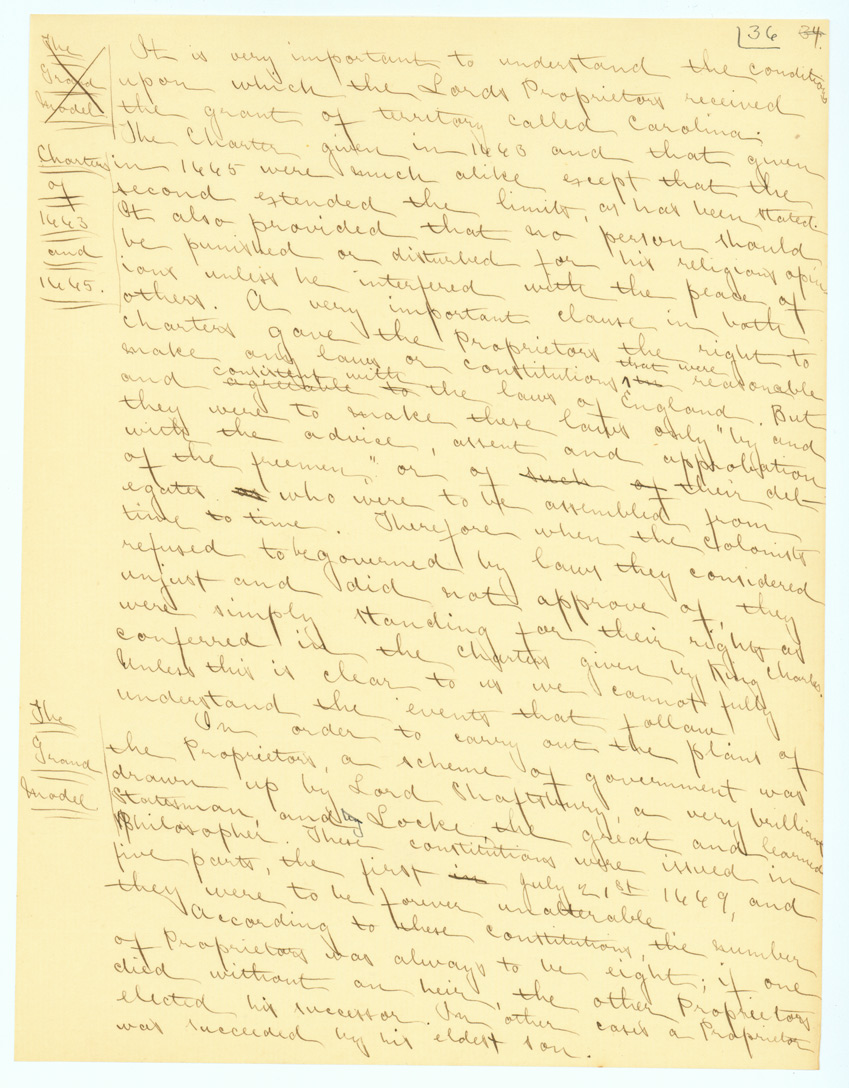 36 34.
The
Grand
Model
It is very important to understand the conditions
upon which the Lords Proprietors received
the grant of territory called Carolina.
Charters
of
1663
and
1665.
The Charter given in 1663 and that given
in 1665 were much alike except that the
second extended the limits, as has been stated.
It also provided that no person should
be punished or disturbed for his religious opin-
ions unless he interfered with the peace of
others. A very important clause in both
charters gave the Proprietors the right to
make any laws or constitutions that were reasonable
and consistent with agreeable to the laws of England. But
they were to make these laws only "by and
with the advice, assent and approbation
of the freemen," or of such of their del-
egates who were to be assembled from
time to time. Therefore when the Colonists
refused to be governed by laws they considered
unjust and did not approve of, they
were simply standing for their rights as
conferred in the charters given by King Charles.
Unless this is clear to us we cannot fully
understand the events that follow
The
Grand
Model
In order to carry out the plans of
the Proprietors, a scheme of government was
drawn up by Lord Shaftsbury, a very brilliant
statesman, and by Locke, the great and learned
Philosopher. These constitutions were issued in
five parts, the first in July 21st 1669, and
they were to be forever unalterable
According to these constitutions, the number
of Proprietors was always to be eight; if one
died without an heir, the other Proprietors
elected his successor. In other cases a Proprietor
was succeeded by his eldest son.